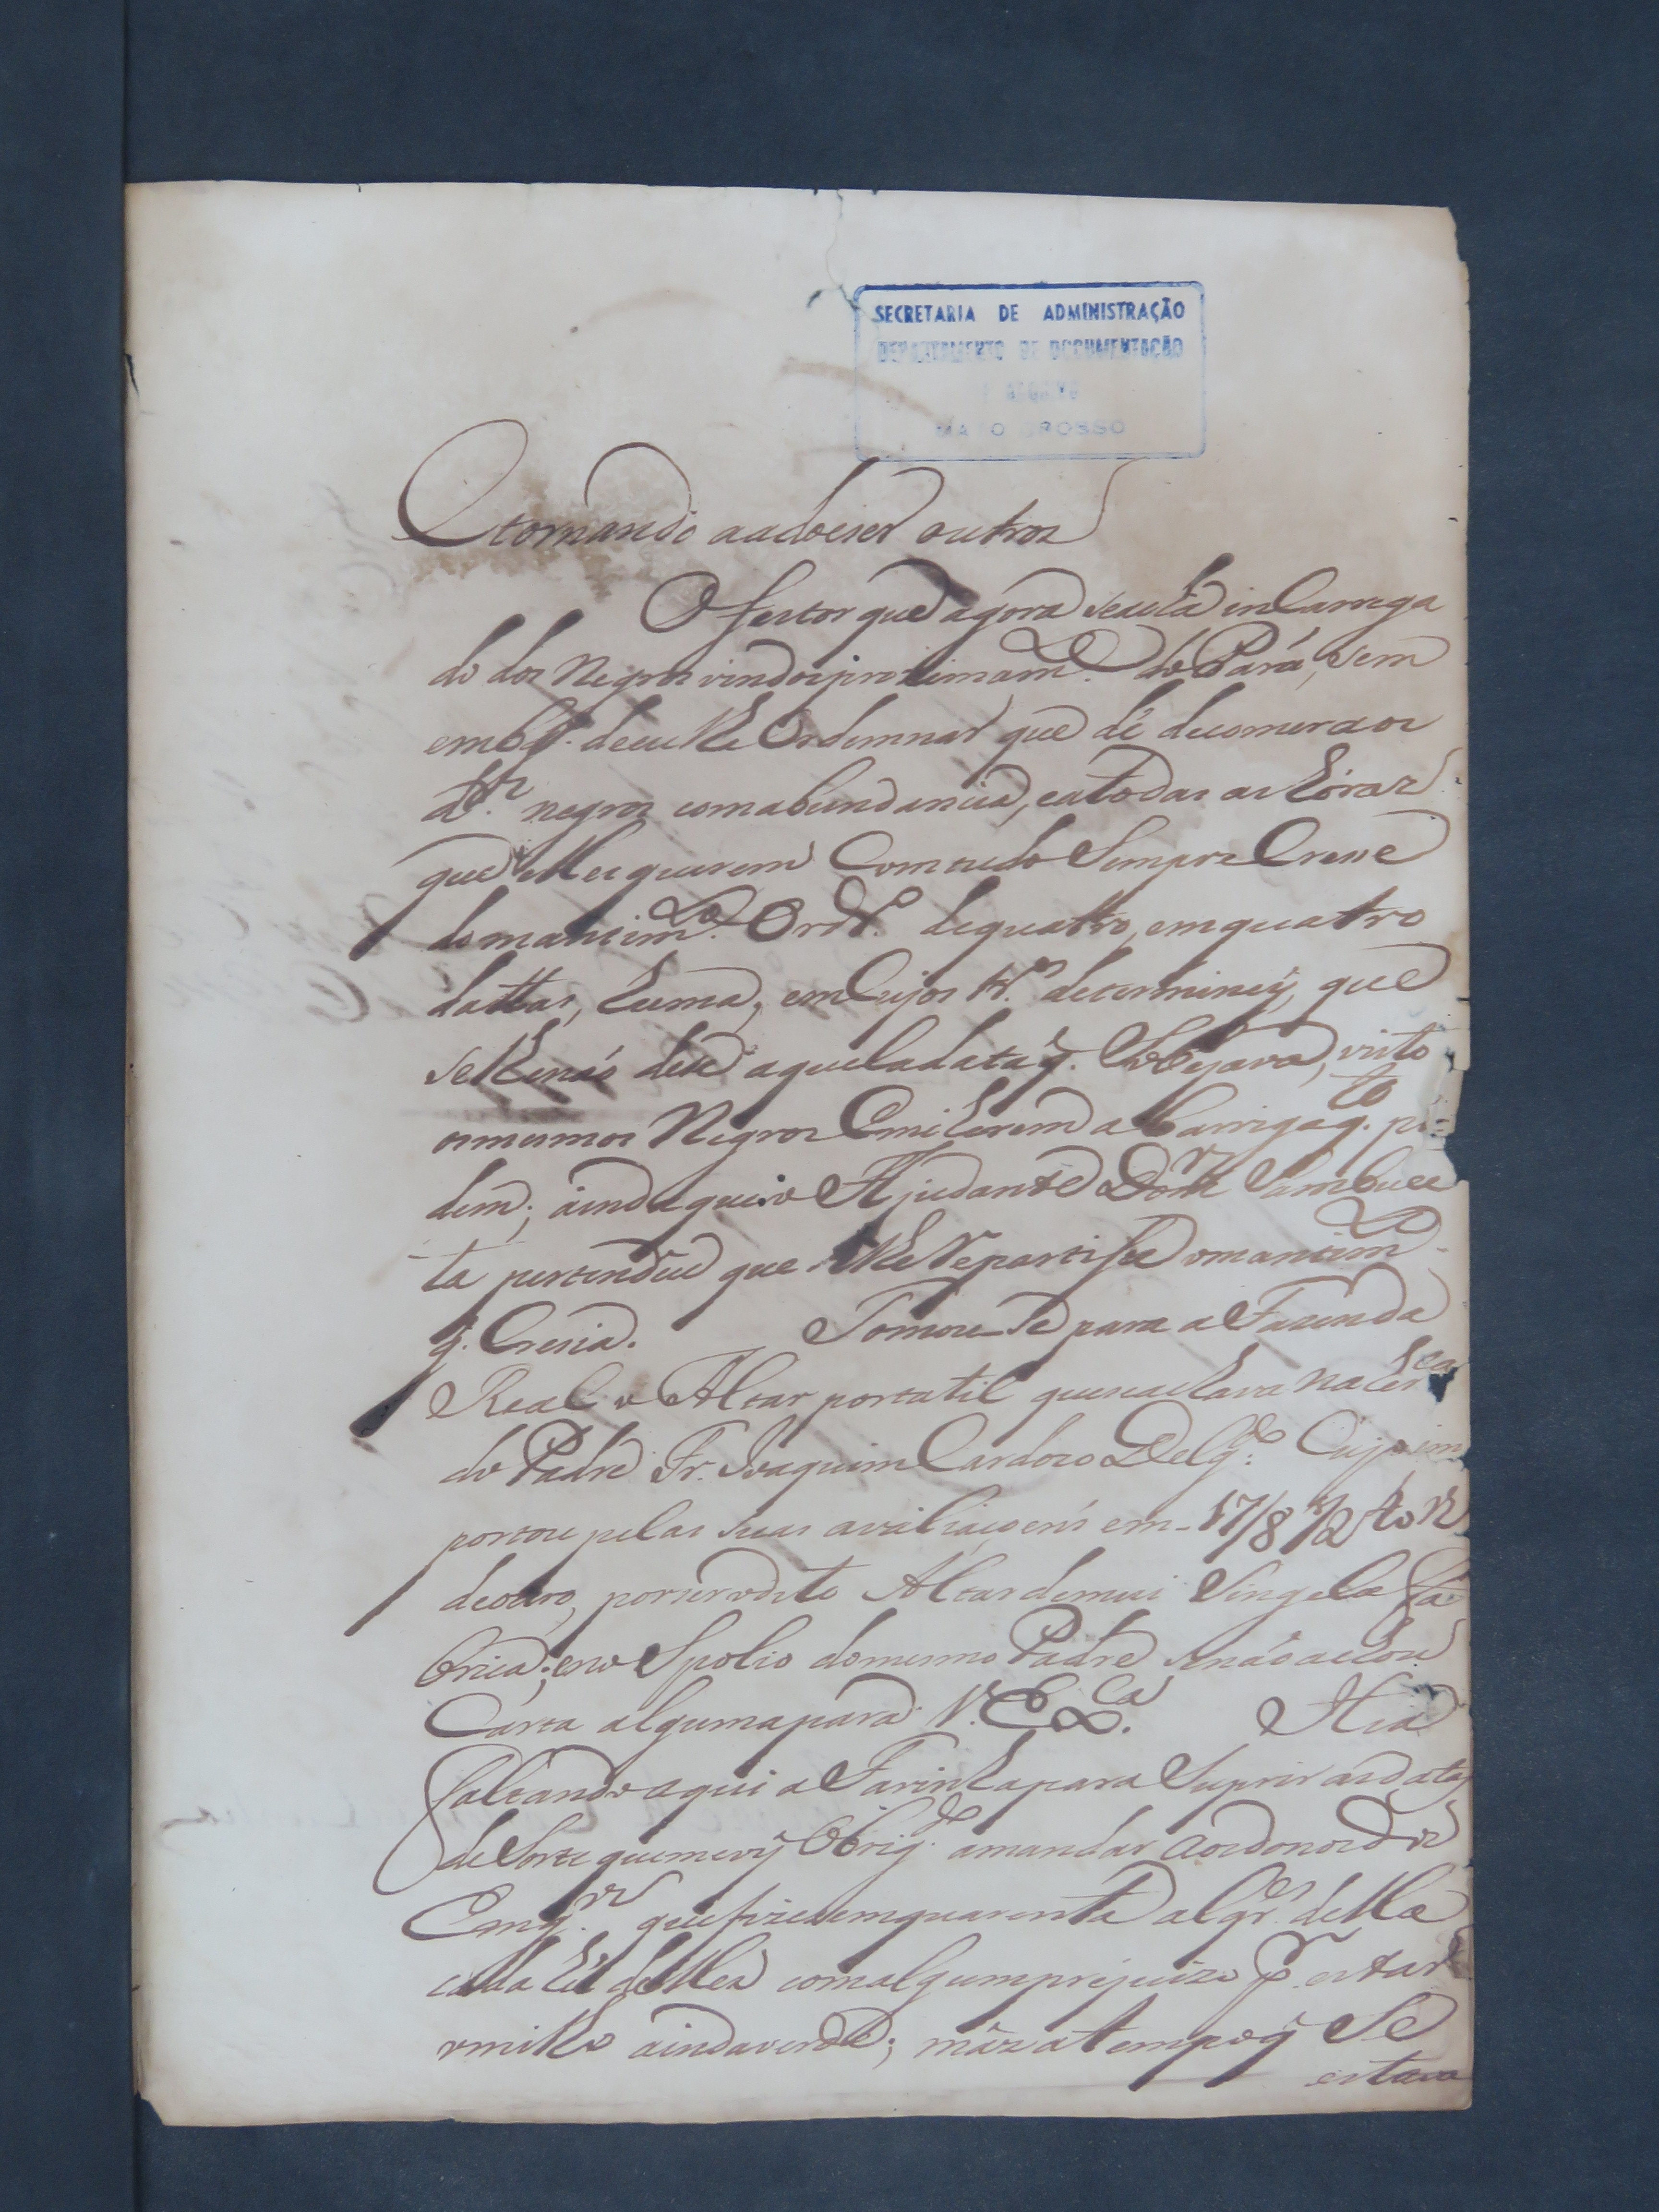 SECRETARIA DE ADMINISTRAÇÃO
DEPARTAMENTO DE DOCUMENTAÇÃO
E ARQUIVO
MATO GROSSO
E tornando a adoeser outros
O feitor que agora se acha incarrega
do dos Negros vindos proximam.te do Pará, sem
emb.º de eu lhe Ordennar que dê de comer aos
d.os negros com abundancia, e a todas as horaz
que elles querem Com tudo Sempre Crese
do mantim.to Ord.rº de quatro, em quatro
dattas, huma; em Cujos tr.os determiney, que
se lhe não dese aquela data q. Sobejava, visto
os mesmos Negros Emcherem a barriga q.to pé-
dem; ainda que o Ajudante Dom.os Sambuce
ta pertendeu que se lhe Repartise o mantim.to
q. Cresia. Tomou-se para a Fazenda
Real o Altar portatil que se achava na her.ca
do Padre Fr. Joaquim Cardozo Delg.do Cujo im
portou pelas suas avaliaçoens em 17/8 1/2 4to rs
de ouro, por ser o dito Altar de mui Singela fa
brica; e no Spolio do mesmo Padre se não achou
Carta alguma para V. Ex.ca Hia
faltando aqui a Farinha para Suprir as datas
de Sorte que me vy Obrig.do a mandar aos donos dos
Eng.os que fizesem quarenta alqr.es della
cada hũ delles com algum prejuizo p.r estar
o milho ainda verde; máz a tempo q̃ Se
estava